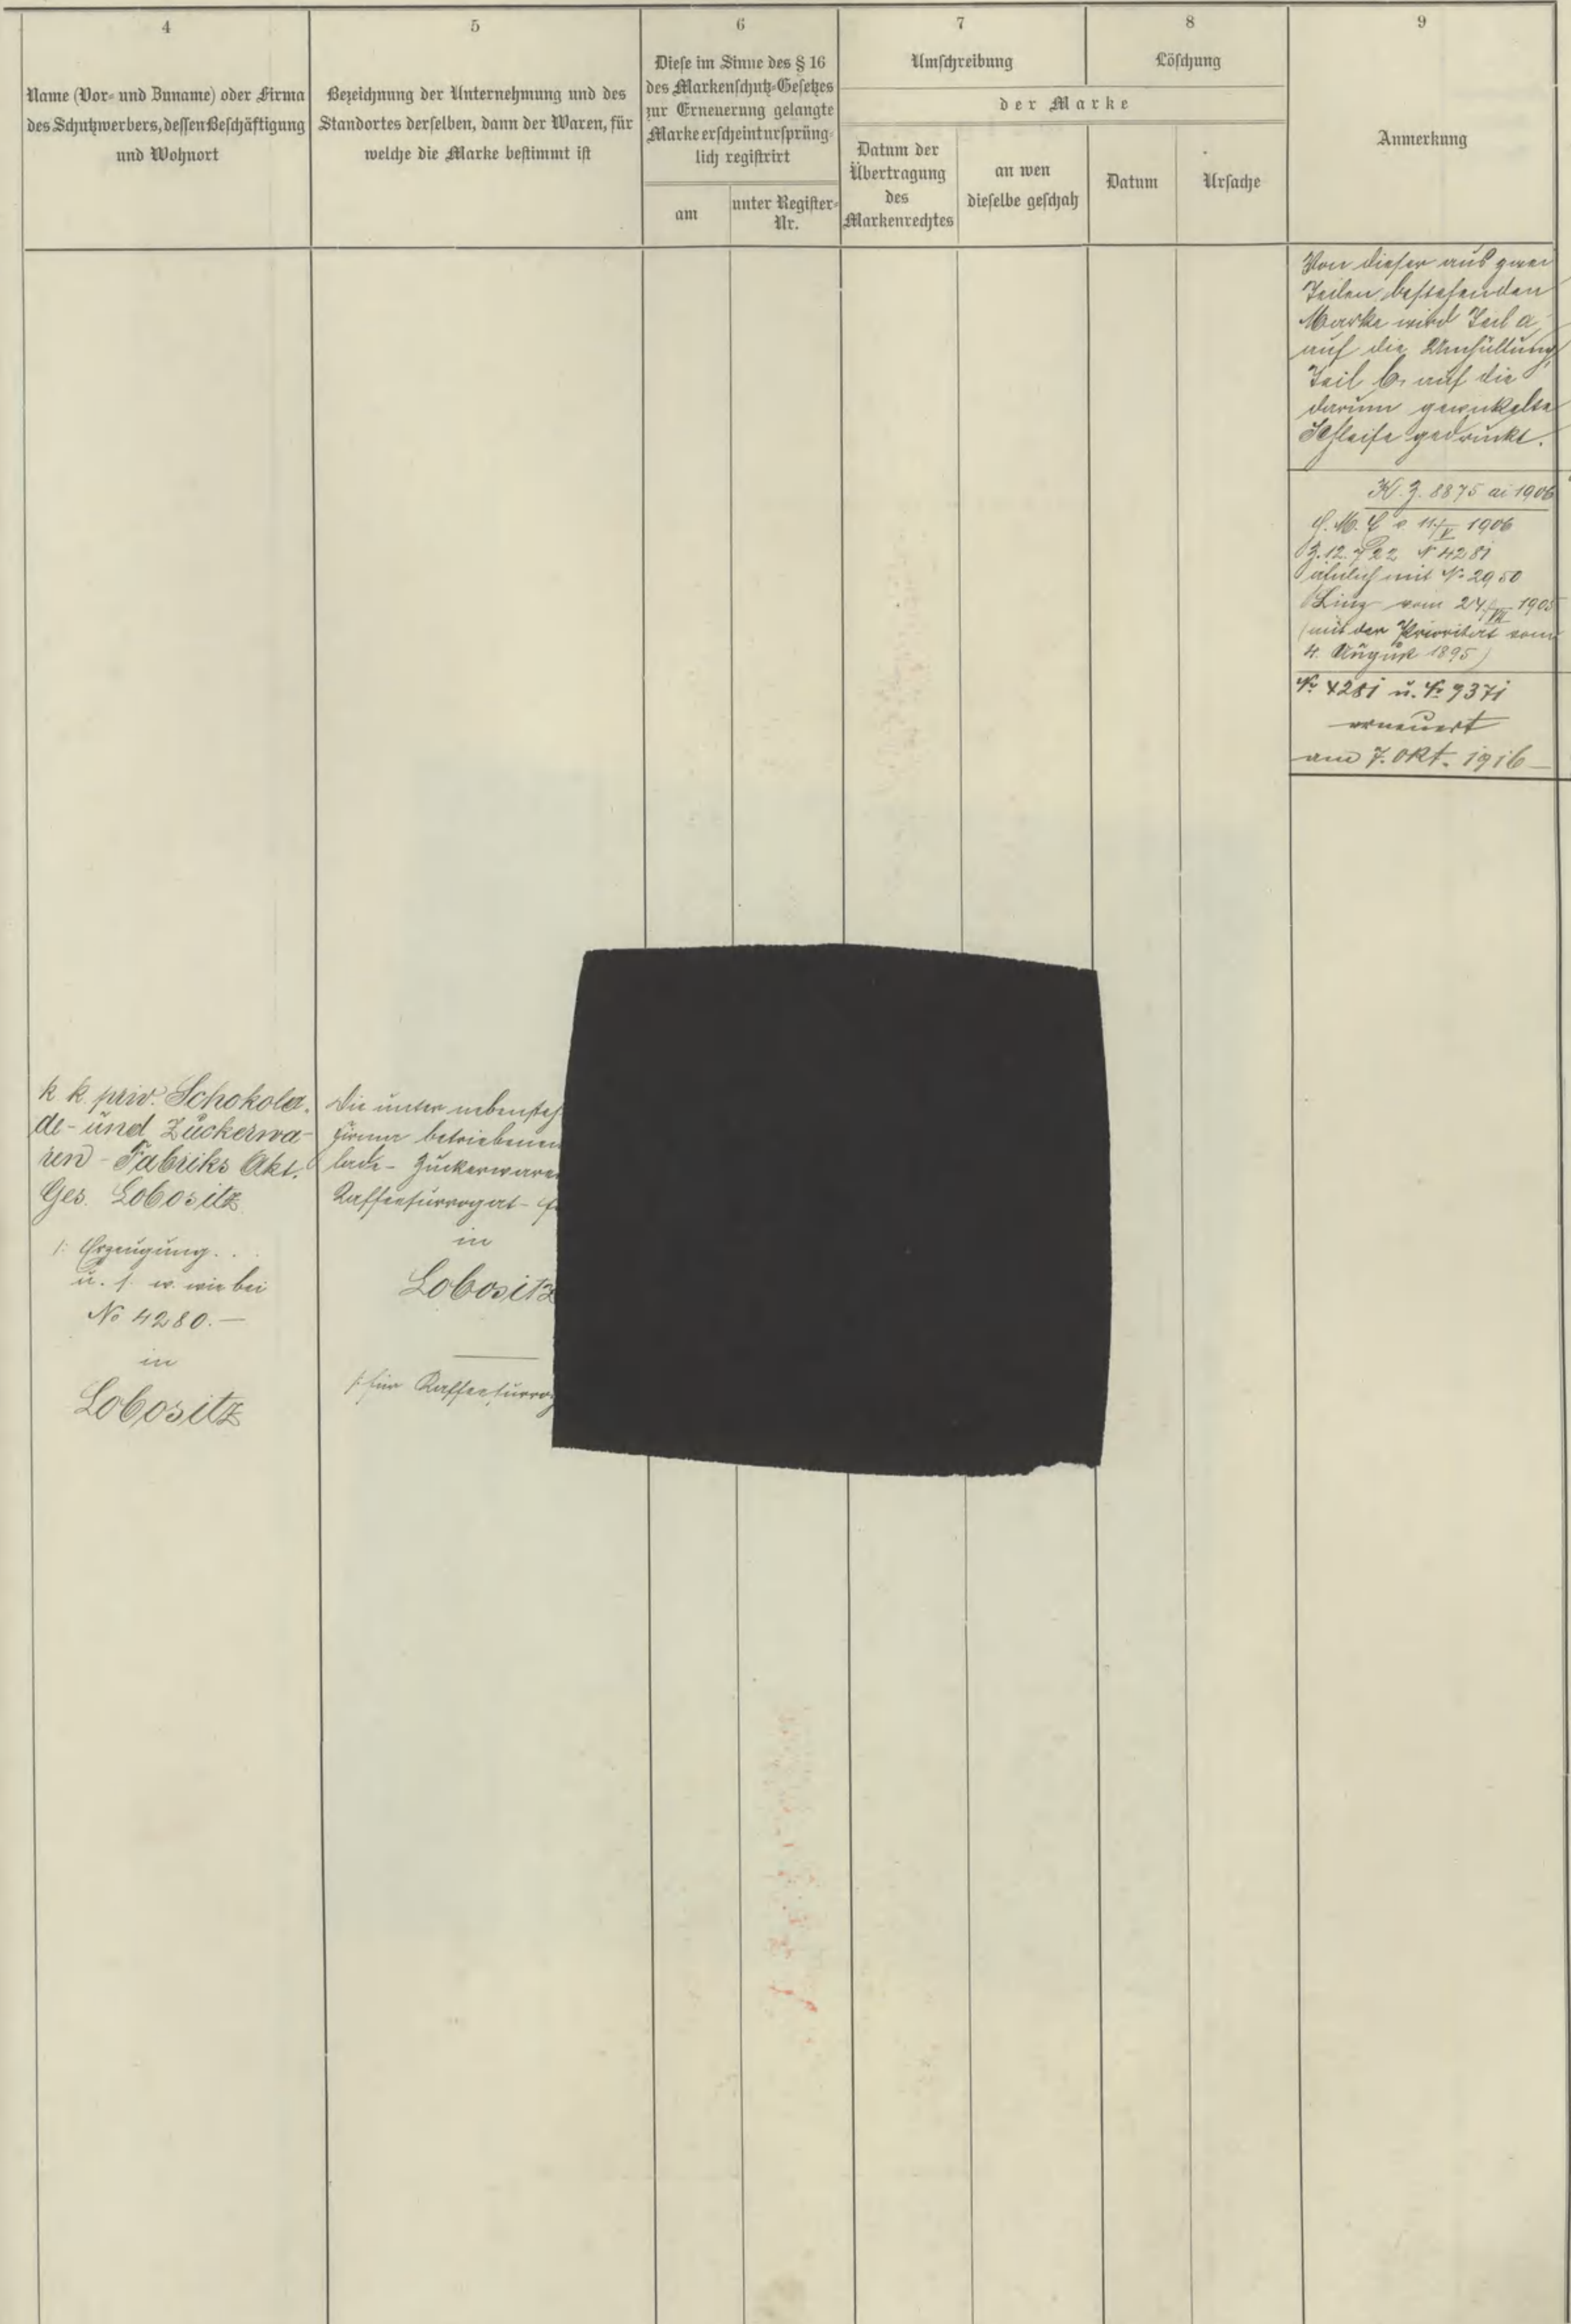 4
Name (Vor- und Zuname) oder Firma
des Schutzwerbers, dessen Beschäftigung
und Wohnort
5
Bezeichnung der Unternehmung und des
Standortes derselben, dann der Waren, für
welche die Marke bestimmt ist
6
Diese im Sinne des § 16
des Markenschutz-Gesetzes
zur Erneuerung gelangte
Marke erscheint ursprüng-
lich registrirt
am
unter Register-
Nr.
7
Umschreibung
8
Löschung
der Marke
Datum der
Übertragung
des
Markenrechtes
an wen
dieselbe geschah
Datum
Ursache
9
Anmerkung
Von dieser aus zwei
Teilen bestehenden
Marke wird Teil a,
auf die Umhüllung,
Teil b, auf die
darum gewickelte
Schleife gedruckt.
8875 ai 1906
11/V 1906
N 4281
ähnlich mit N. 2950
Linz vom 24/VII 1905
(mit der Priorität vom
4. August 1895)
No 4281 u. No 7371
erneuert
am 7. Okt. 1916
k. k. priv. Schokola-
de- und Zuckerwa-
ren-Fabriks Akt.
Ges. Lobositz
/: Erzeugung . .
u. s. w. wie bei
No 4280.—
in
Lobositz
Die unter nebensteh
Firma betriebenen
lade- Zuckerware
Kaffeesurrogat- F
in
Lobositz
/: für Kaffeesurrog